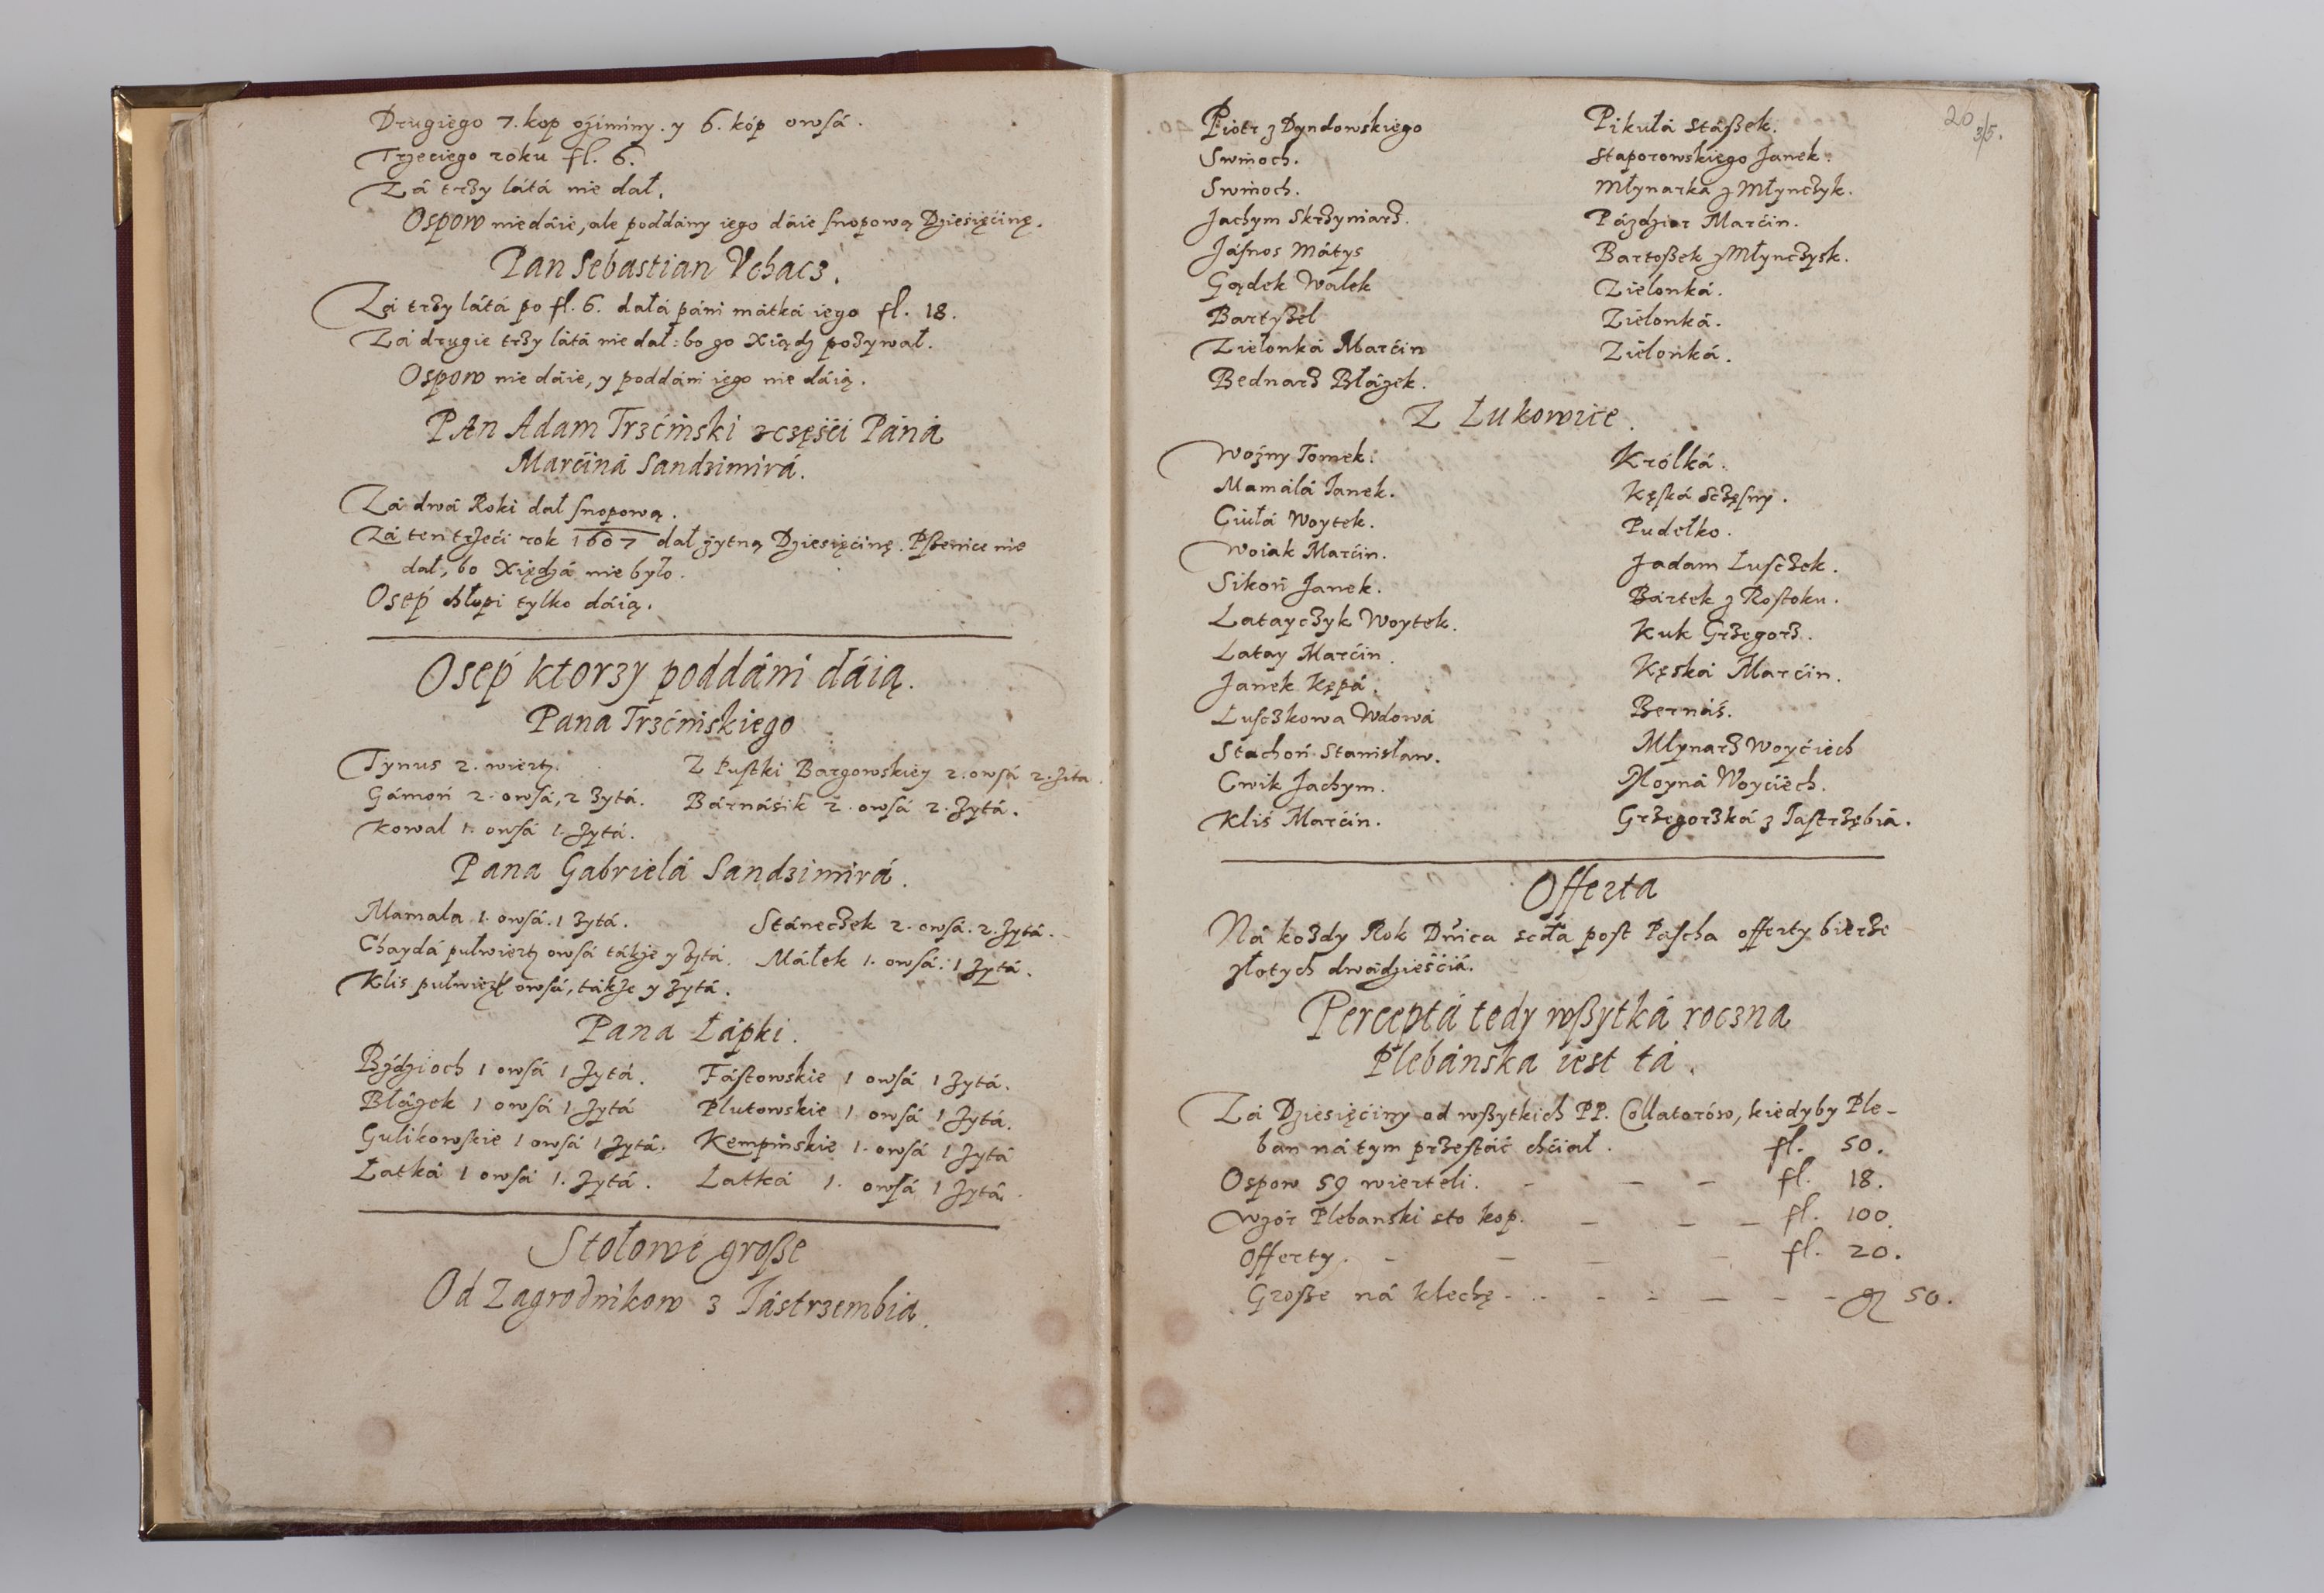 Drugiego 7. kop oźiminy. y 6. kóp owsá.
Trzeciego roku fl. 6.
Zá trzy látá nie dał.
Ospow niedáie, ale poddány iego dáie snopową Dźiesięćinę.
Pan Sebastian Vchacz.
Zá trzy látá po fl. 6. dáłá páni mátká iego fl. 18.
Zá drugie trzy látá nie dał: bo go Xiądz pozywał.
Ospow nie dáie, y poddáni iego nie dáią.
PAn Adam Trzćiński z częśći Páná
Marćiná Sandzimirá.
Zá dwá Roki dał snopową.
Zá ten trzeći rok 1607 dał żytną Dźiesięćinę. Pßenice nie
dał, bo Xiędzá nie było.
Osep chłopi tylko dáią.
Osep ktorzy poddáni dáią.
Pana Trzćińskiego
Tynus 2. wierty.
Z Pustki Bargowskiey 2. owsá 2. żita.
Gámoń 2. owsá, 2 żytá.
Bárnáśik 2. owsá 2. żytá.
Kowal 1. owsá 1. żytá.
Pana Gabrielá Sandzimirá.
Mamala 1. owsá. 1 żytá.
Stáneczek 2. owsá. 2. żytá.
Chaydá pułwierty owsá tákże y żytá.
Máłek 1. owsá. 1 żytá.
Klis pułwierty owsá, tákże y żytá.
Pana Łápki.
Bździoch 1 owsá 1 żytá.
Fástowskie 1 owsá 1 żytá.
Błáżek 1 owsá 1 żytá
Plutowskie 1. owsá 1 żytá.
Gulikowskie 1 owsá 1 żytá.
Kempinskie 1. owsá 1 żytá
Łatká 1 owsá 1. żytá.
Łatká 1. owsá 1 żytá.
Stołowé große
Od Zagrodnikow z Iástrzembia.
20
35.
Piotr z Dyndowskiego
Swinoch.
Swinoch.
Jachym Skrzyniarz.
Jásnos Mátys
Gądek Walek
Bartyzel
Zielonká Marćin
Bednarz Błáżek.
Pikułá Stáßek.
Staporowskiego Janek.
Młynarka z Młynczyk.
Páździor Marćin.
Bartoßek z Młynczysk.
Zielonká.
Zielonká.
Zielonká.
Z Łukowice.
Woźny Tomek.
Mamálá Janek.
Ciułá Woytek.
Woiak Marćin.
Sikoń Janek.
Latayczyk Woytek.
Latay Marćin.
Janek Kępá.
Łusczkowa Wdowá
Stachoń Stanisław.
Cwik Jachym.
Kliś Marćin.
Królká.
Kęská Sczęsny.
Pudełko.
Jadam Łusczek.
Bártek z Rostoku.
Kuk Grzegorz.
Kęská Marćin.
Bernáś.
Młynarz Woyćiech
Moyná Woyćiech.
Grzegorzká z Iastrzębiá.
Offerta
Ná kozdy Rok Dnica scda post Pascha offerty bierze
złotych dwádzieśćiá.
Perceptá tedy wßytká roczna
Plebánska iest tá.
Zá Dźiesięćiny od wßytkich PP. Collatorów, kiedyby Ple-
ban ná tym przestáć chćiał. fl. 50.
Ospow 59 wierteli. - - - fl. 18.
Wzór Plebanski sto kop. - - - fl. 100.
Offerty. - - - - fl. 20.
Große ná klechę - - - - - - - 50.